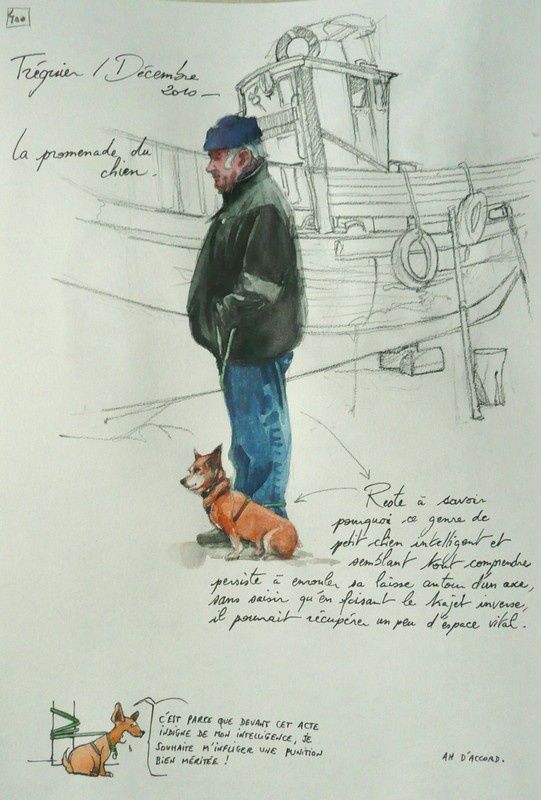 Tréguier / Décembre
2010 –
La promenade du
chien.
Reste à savoir
pourquoi ce genre de
petit chien intelligent et
semblant tout comprendre
persiste à enrouler sa laisse autour d'un axe,
sans saisir qu'en faisant le trajet inverse,
il pourrait récupérer un peu d'espace vital.
C'EST PARCE QUE DEVANT CET ACTE
INDIGNE DE MON INTELLIGENCE, JE
SOUHAITE M'INFLIGER UNE PUNITION
BIEN MÉRITÉE !
AH D'ACCORD.